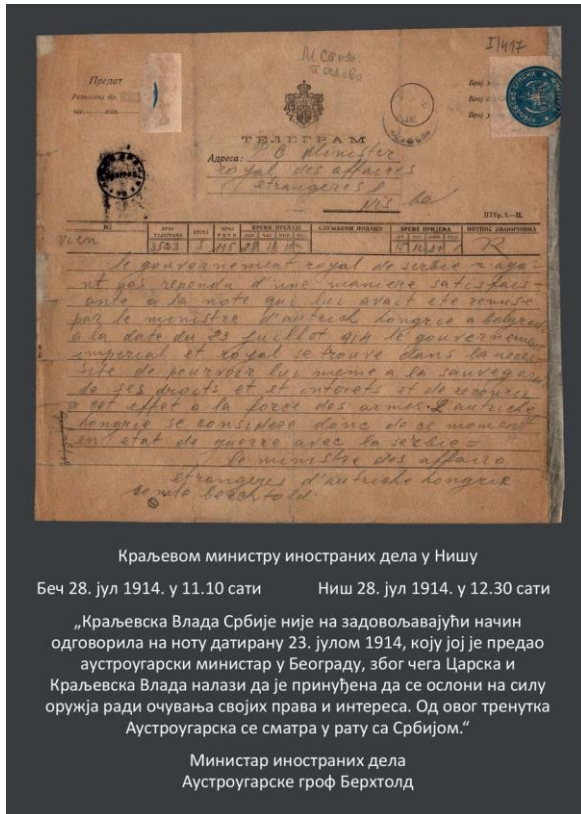 I/417
Предат
ТЕЛЕГРАМ
Адреса: P B Minister
royal des affaires
etrangeres
Nis
ПТБр. 5.—II.
Vien
3523
le gouvernement royal de serbie n aya-
nt pas reponda d'une maniere satisfais-
ante a la note qui lui avait ete remise
par le ministre d'autrich hongrie a belgrade
a la date du 23 juillot 914 le gouverneme
imperial et royal se trouve dans la neces
site de pourvoir lui meme a la sauvegar
de ses droits et et interets et de recourir
a cet effet a la force des armes. L'autriche
hongrie se considere donc de ce moment
en etat de guerre avec la serbie =
le ministre des affaire
etrangeres d'autriche hongrie
comte berchtold
Краљевом министру иностраних дела у Нишу
Беч 28. јул 1914. у 11.10 сати Ниш 28. јул 1914. у 12.30 сати
„Краљевска Влада Србије није на задовољавајући начин
одговорила на ноту датирану 23. јулом 1914, коју јој је предао
аустроугарски министар у Београду, због чега Царска и
Краљевска Влада налази да је принуђена да се ослони на силу
оружја ради очувања својих права и интереса. Од овог тренутка
Аустроугарска се сматра у рату са Србијом.“
Министар иностраних дела
Аустроугарске гроф Берхтолд